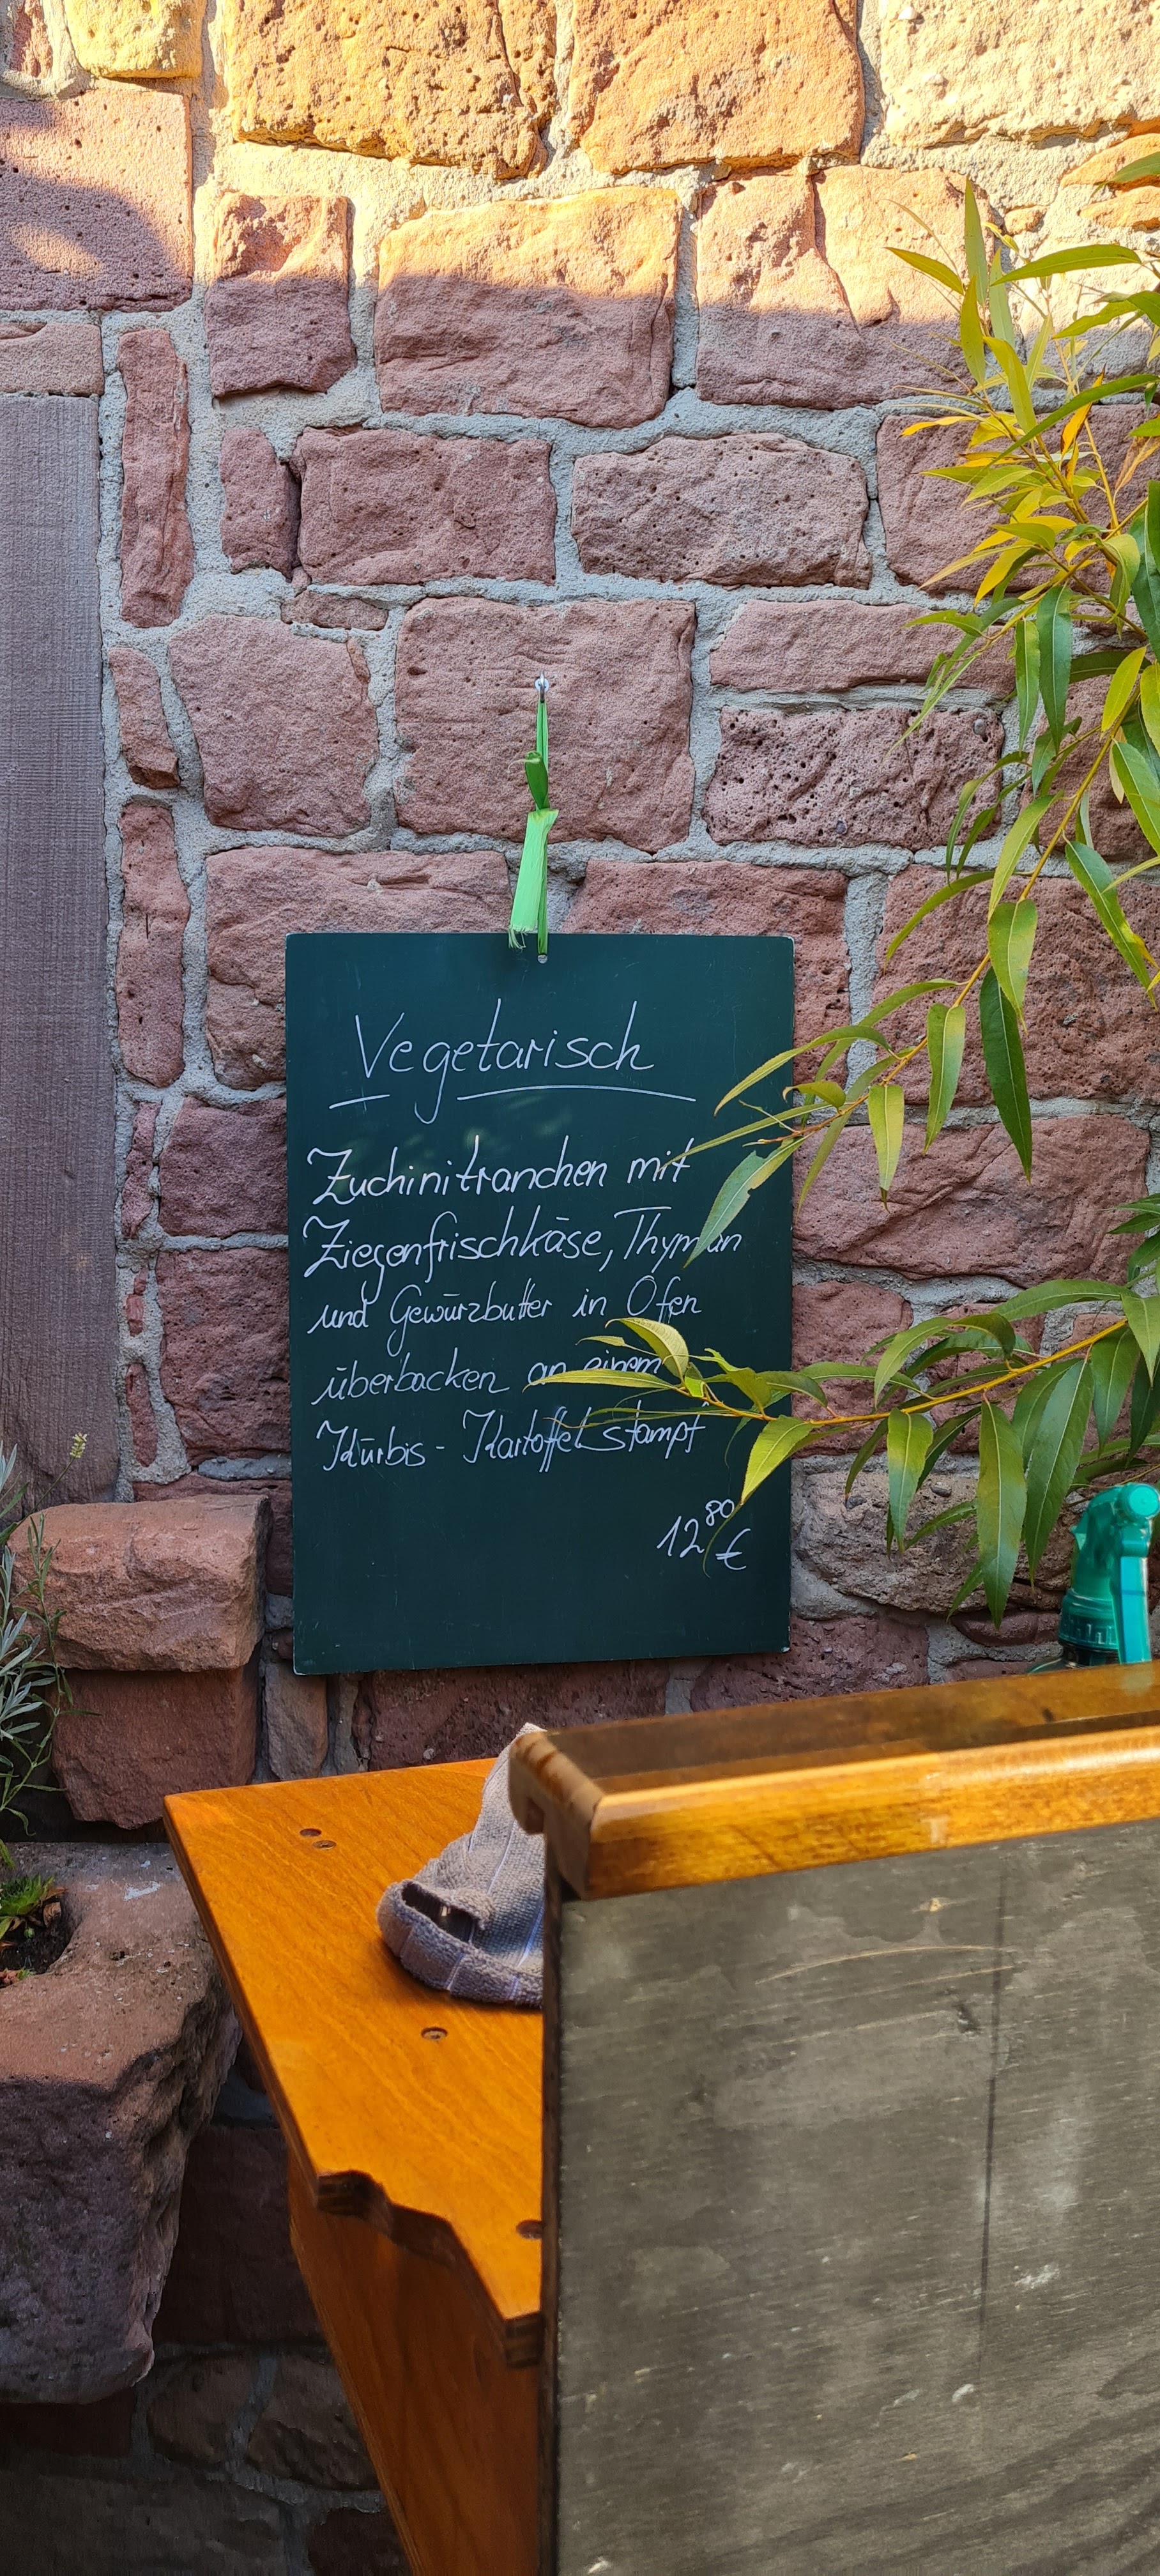 Vegetarisch
Zuchinitranchen mit
Ziegenfrischkäse, Thymian
und Gewürzbutter in Ofen
überbacken an einem
Kürbis - Kartoffelstampf
12 80 €